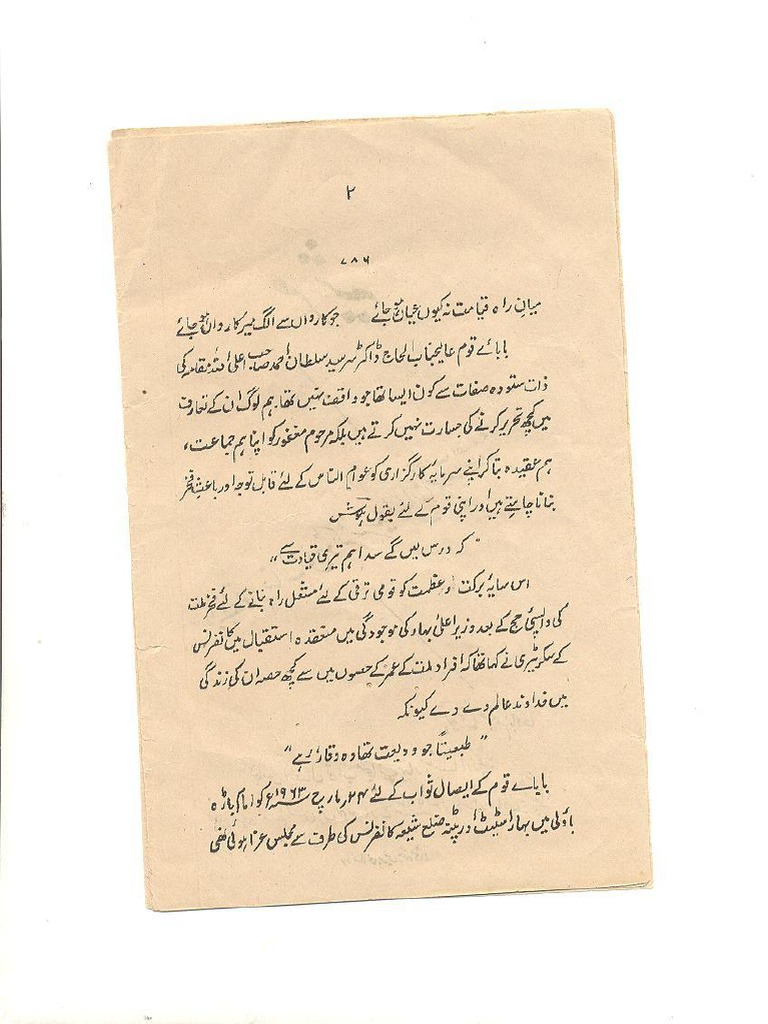 ۲
۷۸۶
میانِ راہ قیامت نہ کیوں عیاں ہو جائے جو کارواں سے الگ میرِ کارواں ہو جائے
بابائے قوم عالیجناب الحاج ڈاکٹر سر سید سلطان احمد صاحب اعلیٰ اللہ مقامہ کی
ذات ستودہ صفات سے کون ایسا تھا جو واقف نہیں تھا۔ ہم لوگ ان کے تعارف
میں کچھ تحریر کرنے کی جسارت نہیں کرتے ہیں بلکہ مرحوم مغفور کو اپنا ہم جماعت،
ہم عقیدہ بتا کر اپنے سرمایۂ کارگزاری کو عوام الناس کے لئے قابل توجہ اور باعثِ فخر
بنانا چاہتے ہیں اور اپنی قوم کے لئے بقول ہوش
" کہ درس لیں گے سدا ہم تیری قیادت سے "
اس سایۂ برکت و عظمت کو قومی ترقی کے لئے مشعل راہ بنانے کے لئے فخر ملت
کی واپسیٔ حج کے بعد وزیر اعلیٰ بہار کی موجودگی میں منعقدہ استقبال میں کانفرنس
کے سکریٹیری نے کہا تھا کہ افراد ملت کے عمر کے حصوں میں سے کچھ حصہ ان کی زندگی
میں خداوند عالم دے دے کیونکہ
" طبعیتاً جو ودیعت تھا وہ وقار رہے "
بابائے قوم کے ایصال ثواب کے لئے ۲۴ مارچ ۱۹۶۳ء کو امام باڑہ
باؤلی میں بہار اسٹیٹ اور پٹنہ ضلع شیعہ کانفرنس کی طرف سے مجلس عزا ہوئی تھی